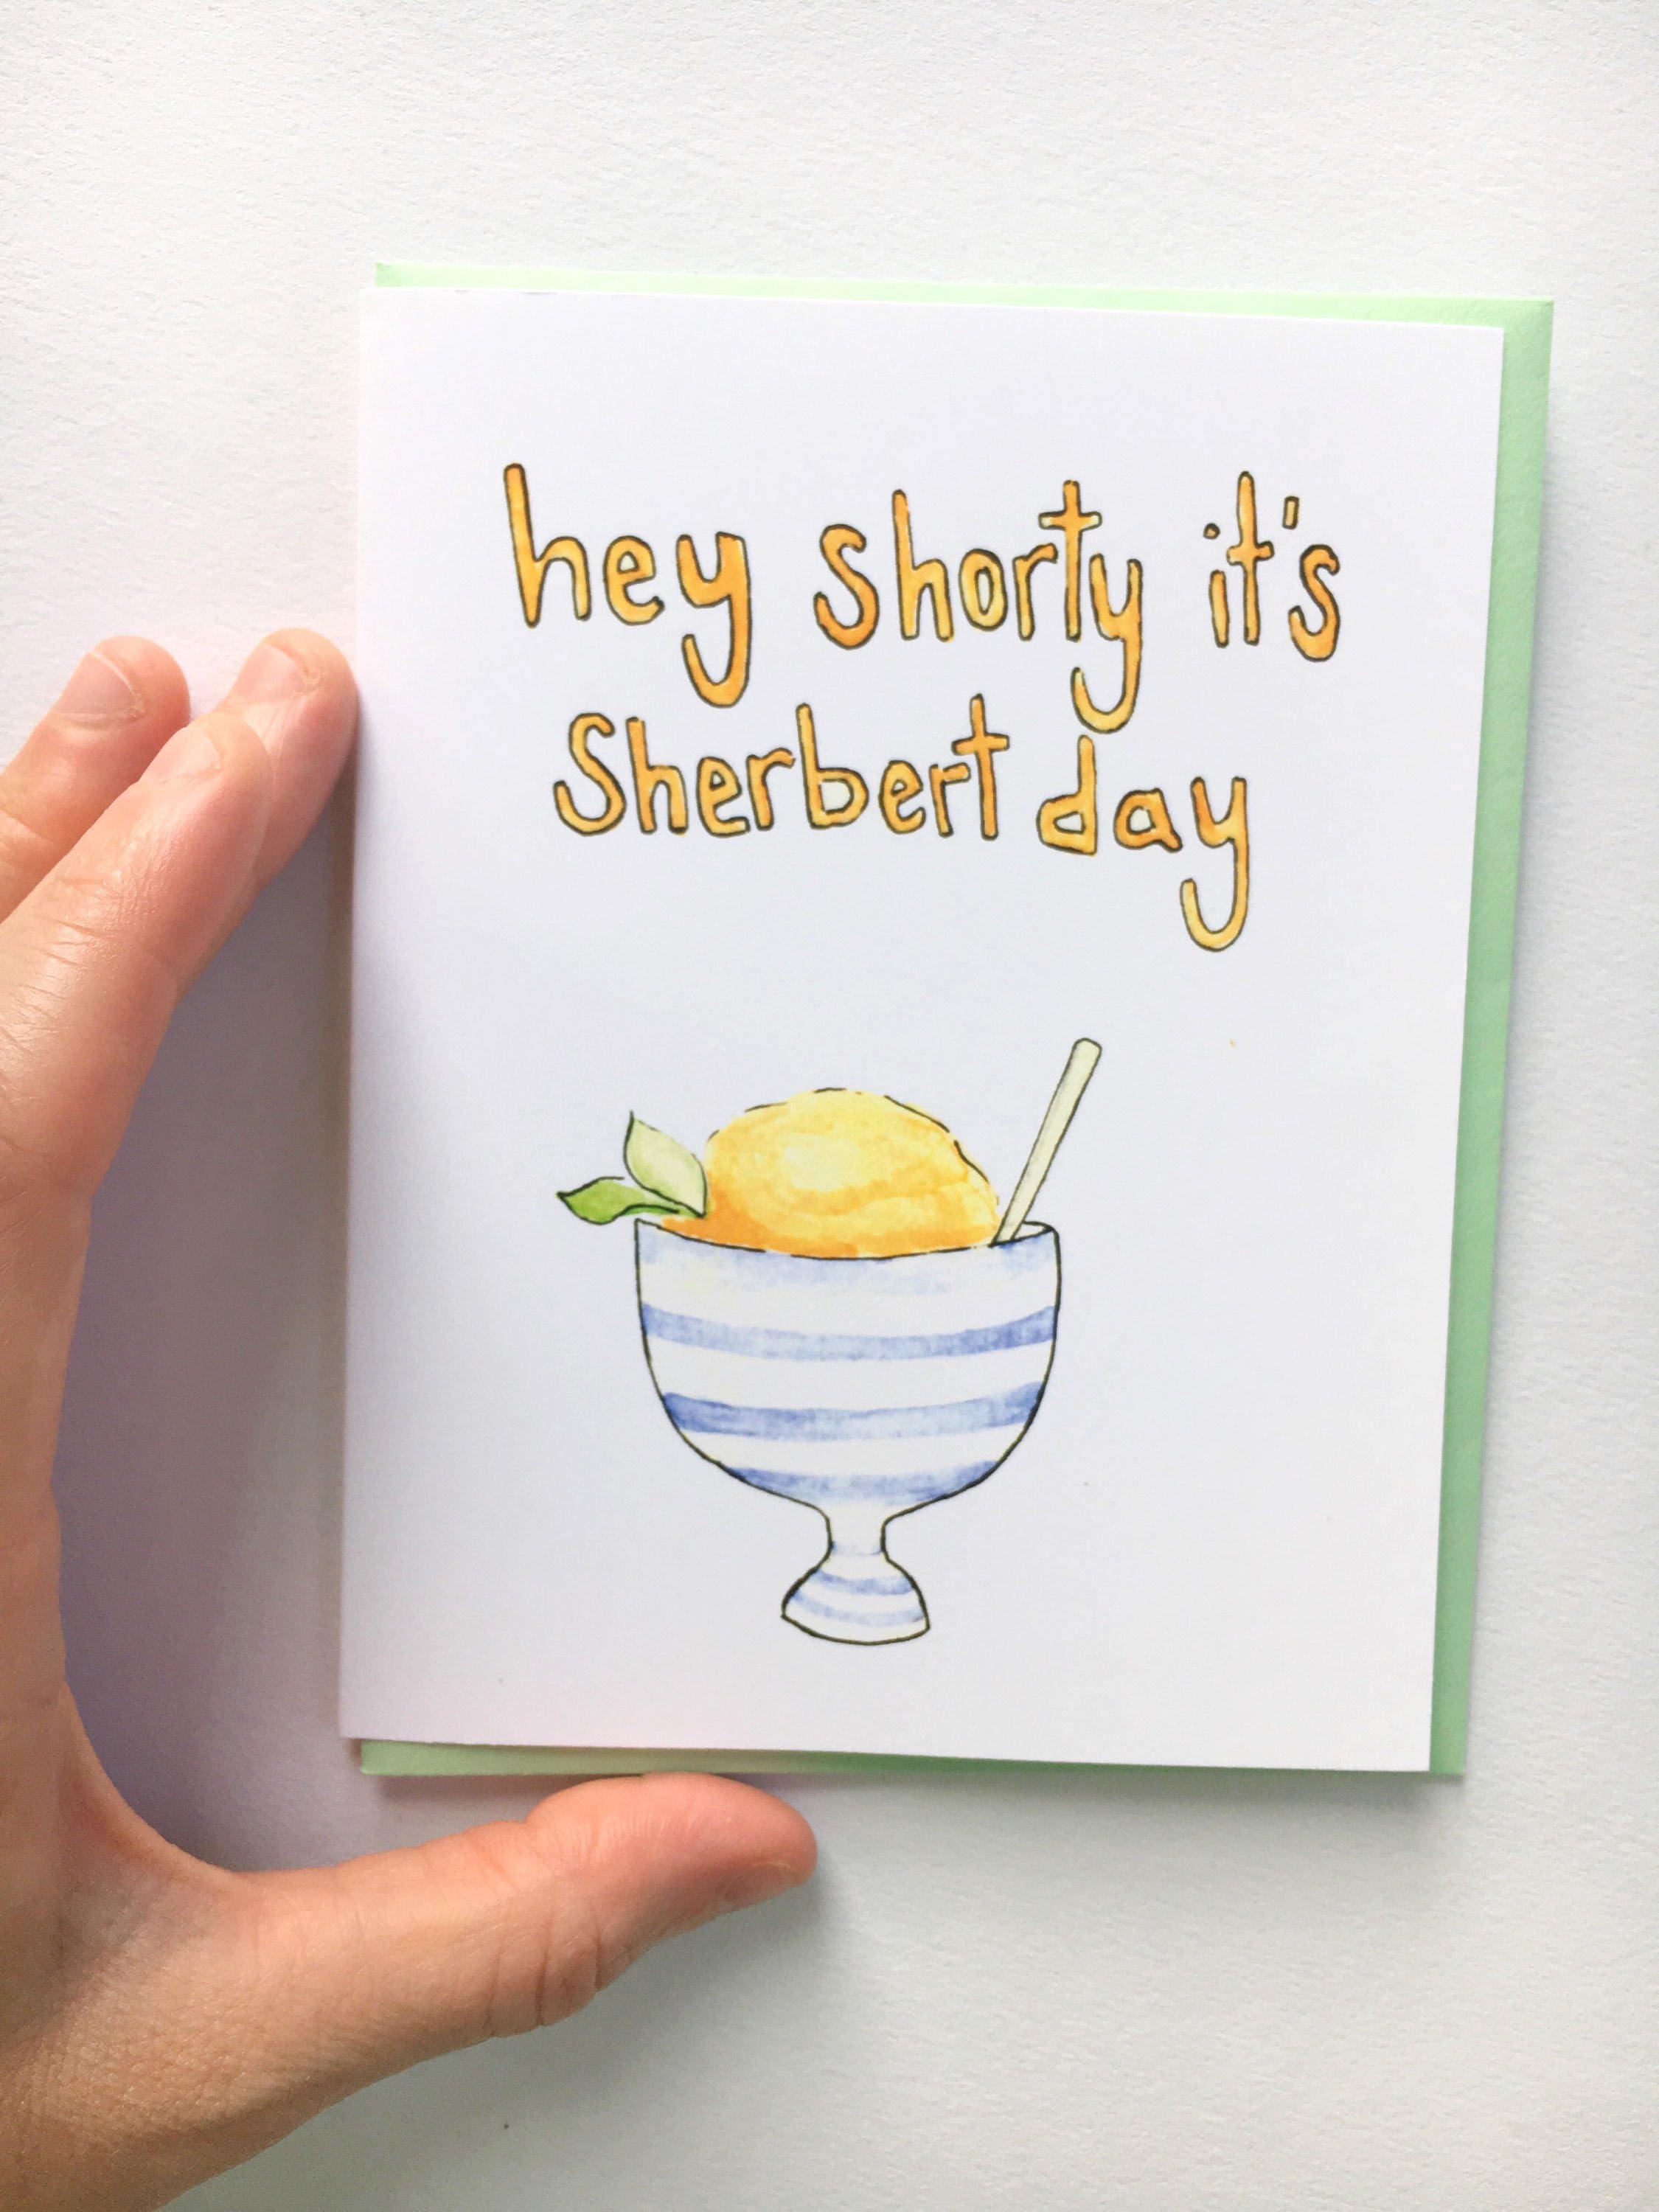 hey shorty it's
Sherbert day